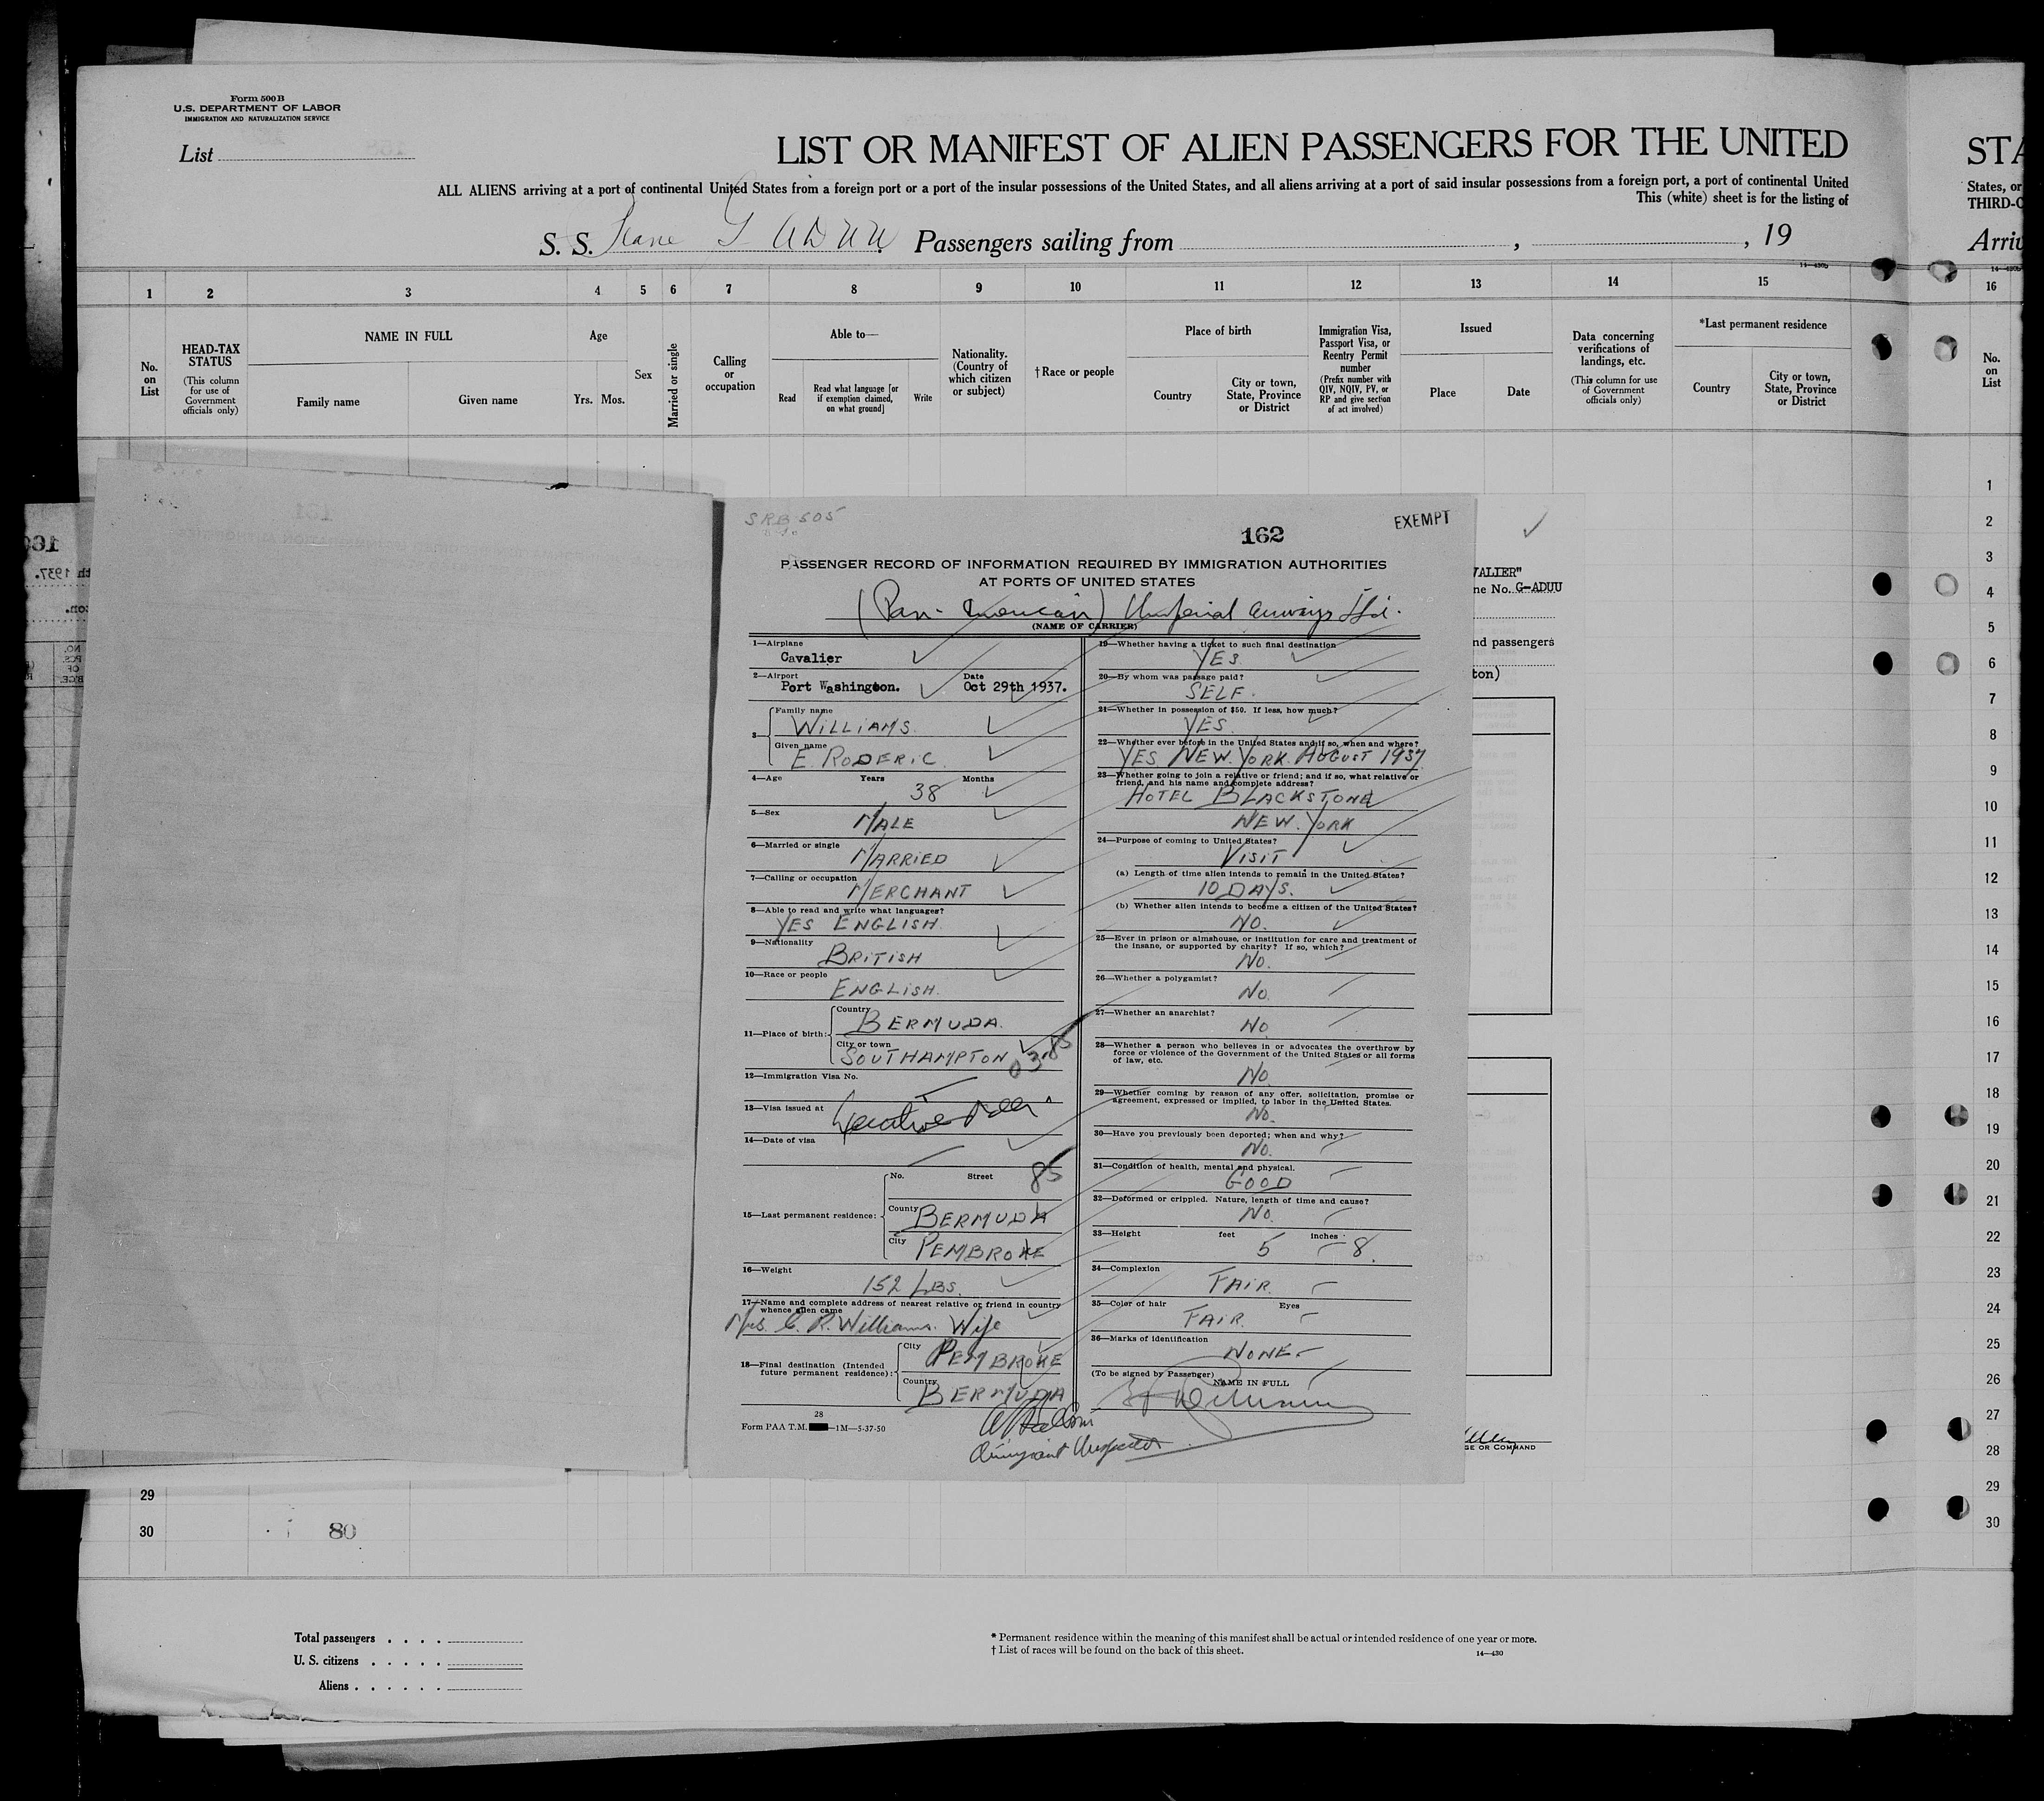 Form 500 B
U.S. DEPARTMENT OF LABOR
IMMIGRATION AND NATURALIZATION SERVICE
List
LIST OR MANIFEST OF ALIEN PASSENGERS FOR THE UNITED
STA
ALL ALIENS arriving at a port of continental United States from a foreign port or a port of the insular possessions of the United States, and all aliens arriving at a port of said insular possessions from a foreign port, a port of continental United
States, or
This (white) sheet is for the listing of
THIRD-C
S. S. Plane G ADUU Passengers sailing from , , 19
Arriv
14—430b
1 2 3 4 5 6 7 8 9 10 11 12 13 14 15 16
No. on List
HEAD-TAX STATUS
(This column for use of Government officials only)
NAME IN FULL
Family name
Given name
Age
Yrs. Mos.
Sex
Married or single
Calling or occupation
Able to—
Read
Read what language [or if exemption claimed, on what ground]
Write
Nationality. (Country of which citizen or subject)
† Race or people
Place of birth
Country
City or town, State, Province or District
Immigration Visa, Passport Visa, or Reentry Permit number
(Prefix number with QIV, NQIV, PV, or RP and give section of act involved)
Issued
Place
Date
Data concerning verifications of landings, etc.
(This column for use of Government officials only)
*Last permanent residence
Country
City or town, State, Province or District
No. on List
SRB 505
162
EXEMPT
PASSENGER RECORD OF INFORMATION REQUIRED BY IMMIGRATION AUTHORITIES
AT PORTS OF UNITED STATES
(Pan-American) Imperial Airways Ltd.
(NAME OF CARRIER)
1—Airplane
Cavalier
2—Airport
Port Washington.
Date
Oct 29th 1937.
3—
Family name
WILLIAMS.
Given name
E. RODERIC.
4—Age Years Months
38
5—Sex
MALE
6—Married or single
MARRIED
7—Calling or occupation
MERCHANT
8—Able to read and write what languages?
YES ENGLISH.
9—Nationality
BRITISH
10—Race or people
ENGLISH.
11—Place of birth:
Country
BERMUDA.
City or town
SOUTHAMPTON
03-85
12—Immigration Visa No.
13—Visa issued at
14—Date of visa
15—Last permanent residence:
No. Street
85
County
BERMUDA
City
PEMBROKE
16—Weight
152 LBS.
17—Name and complete address of nearest relative or friend in country
whence alien came
Mrs. E. R. Williams. Wife
18—Final destination (Intended
future permanent residence):
City
PEMBROKE
Country
BERMUDA
28
Form PAA T.M. —1M—5-37-50
19—Whether having a ticket to such final destination
YES.
20—By whom was passage paid?
SELF.
21—Whether in possession of $50. If less, how much?
YES.
22—Whether ever before in the United States and if so, when and where?
YES NEW YORK AUGUST 1937
23—Whether going to join a relative or friend; and if so, what relative or
friend, and his name and complete address?
HOTEL BLACKSTONE
NEW. YORK
24—Purpose of coming to United States?
VISIT
(a) Length of time alien intends to remain in the United States?
10 DAYS.
(b) Whether alien intends to become a citizen of the United States?
NO.
25—Ever in prison or almshouse, or institution for care and treatment of
the insane, or supported by charity? If so, which?
NO.
26—Whether a polygamist?
NO.
27—Whether an anarchist?
NO
28—Whether a person who believes in or advocates the overthrow by
force or violence of the Government of the United States or all forms
of law, etc.
NO.
29—Whether coming by reason of any offer, solicitation, promise or
agreement, expressed or implied, to labor in the United States.
NO.
30—Have you previously been deported; when and why?
NO.
31—Condition of health, mental and physical.
GOOD
32—Deformed or crippled. Nature, length of time and cause?
NO.
33—Height feet inches
5 8.
34—Complexion
FAIR.
35—Color of hair Eyes
FAIR.
36—Marks of identification
NONE
(To be signed by Passenger)
NAME IN FULL
Immigrant Inspector
VALIER"
ne No. G-ADUU
nd passengers
ton)
GE OR COMMAND
1
2
3
4
5
6
7
8
9
10
11
12
13
14
15
16
17
18
19
20
21
22
23
24
25
26
27
28
29
30
29
30
80
Total passengers
U. S. citizens
Aliens
* Permanent residence within the meaning of this manifest shall be actual or intended residence of one year or more.
† List of races will be found on the back of this sheet.
14—430